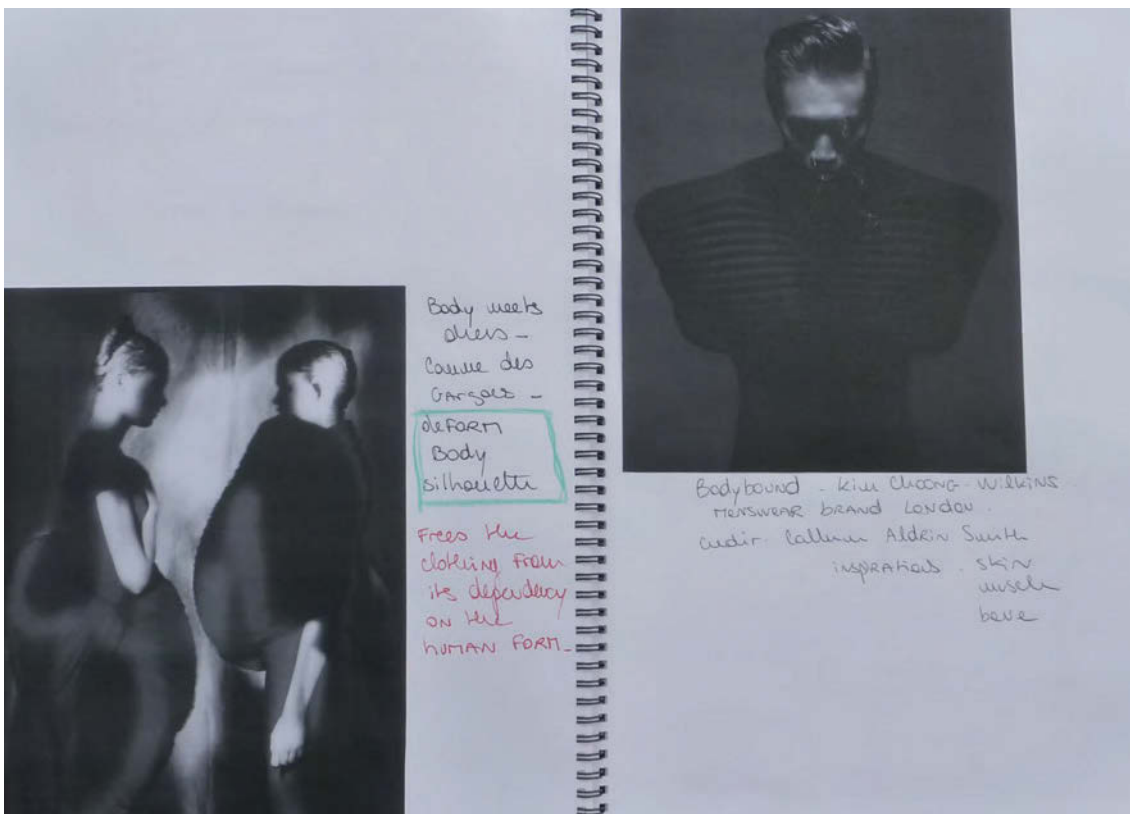 Body meets
dress -
Comme des
GARÇONS -
deFORM
Body
silhouette
Frees the
clothing From
its dependency
ON the
human FORM -
Bodybound - Kim Choong - Wilkins
MENSWEAR BRAND LONDON.
Callum Aldrin Smith
inspirations - skin
muscle
bone